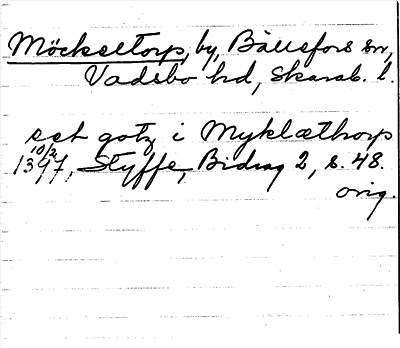 Möckeltorp, by, Bällefors sn,
Vadsbo hd, Skarab. l.
ect gotz i Myklæthorp
10/2
1397, Styffe, Bidrag 2, s. 48.
orig.